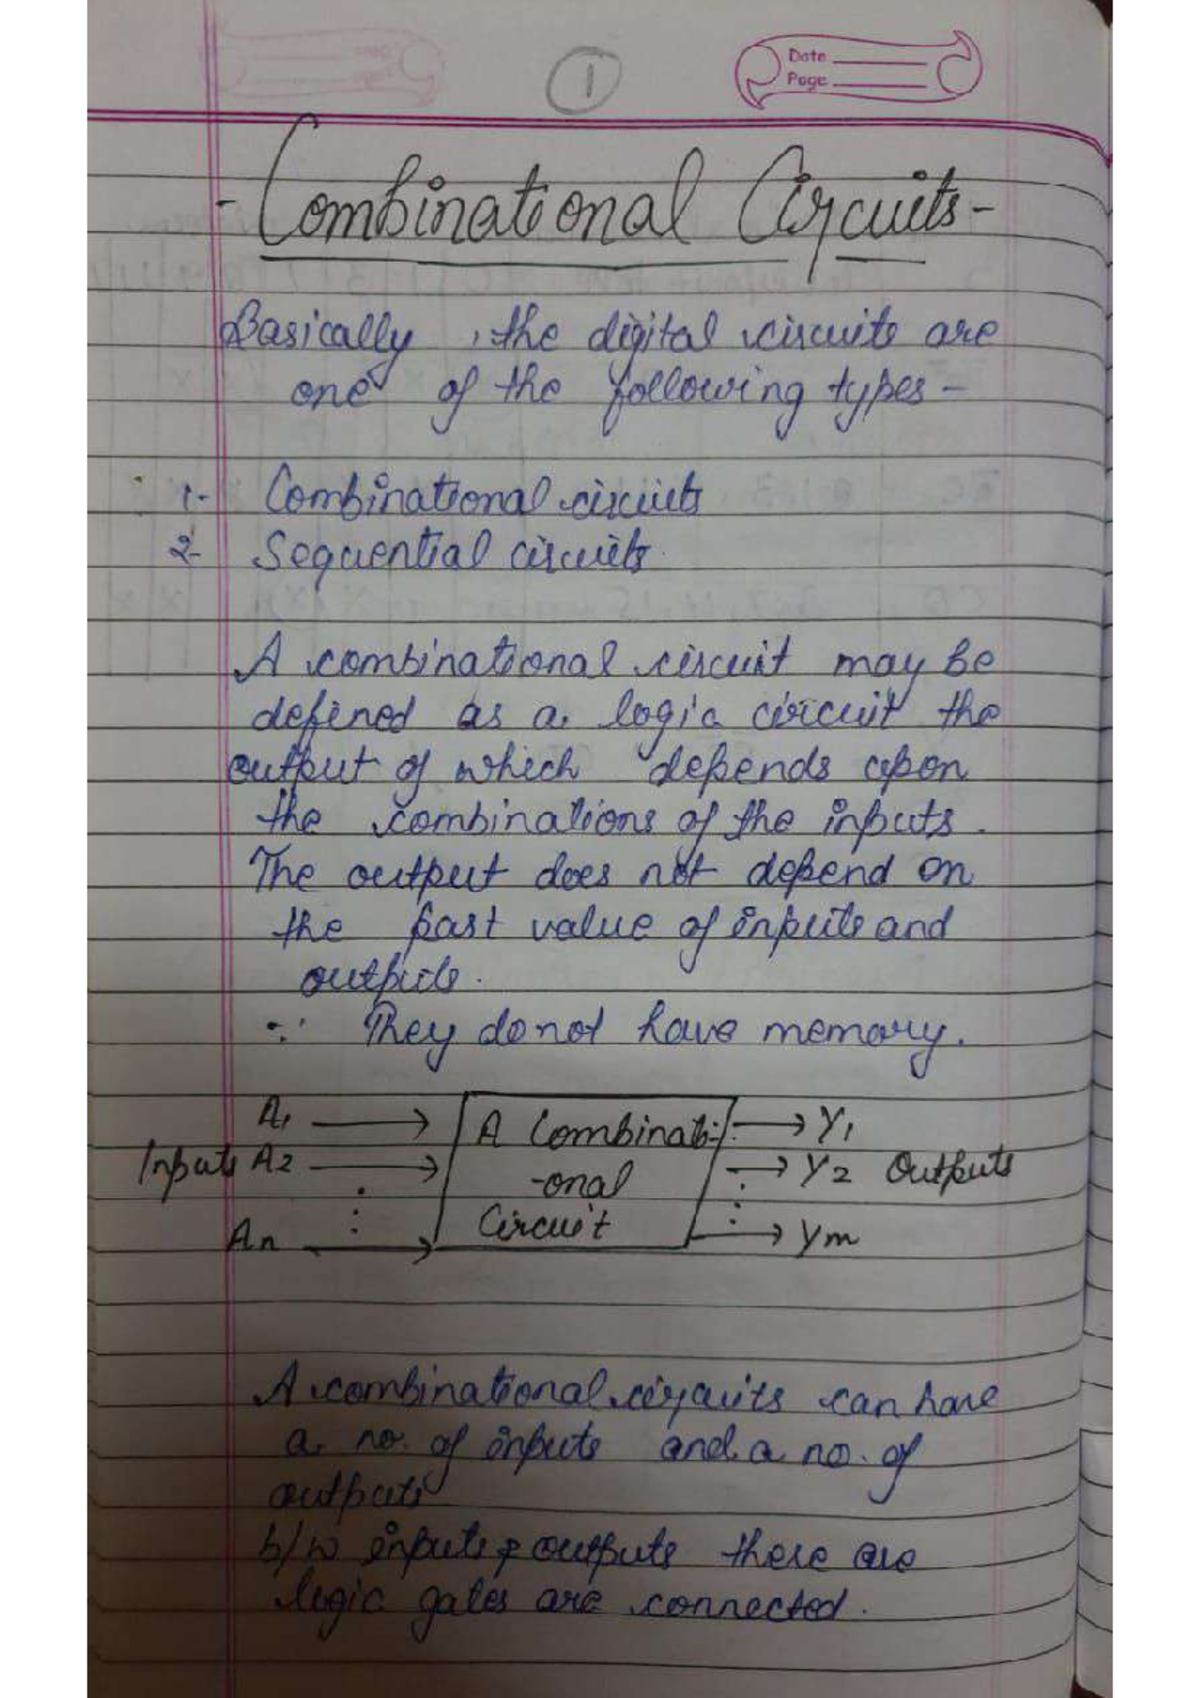 1
Date
Page
- Combinational Circuits -
Basically, the digital circuits are
one of the following types -
1- Combinational circuits
2- Sequential circuits.
A combinational circuit may be
defined as a logic circuit the
output of which depends upon
the combinations of the inputs.
The output does not depend on
the past value of inputs and
outputs.
∵ They do not have memory.
A1 → A Combinati- → Y1
Inputs A2 → -onal → Y2 Outputs
An → Circuit → Ym
A combinational circuits can have
a no. of inputs and a no. of
outputs
b/w inputs & outputs there are
logic gates are connected.